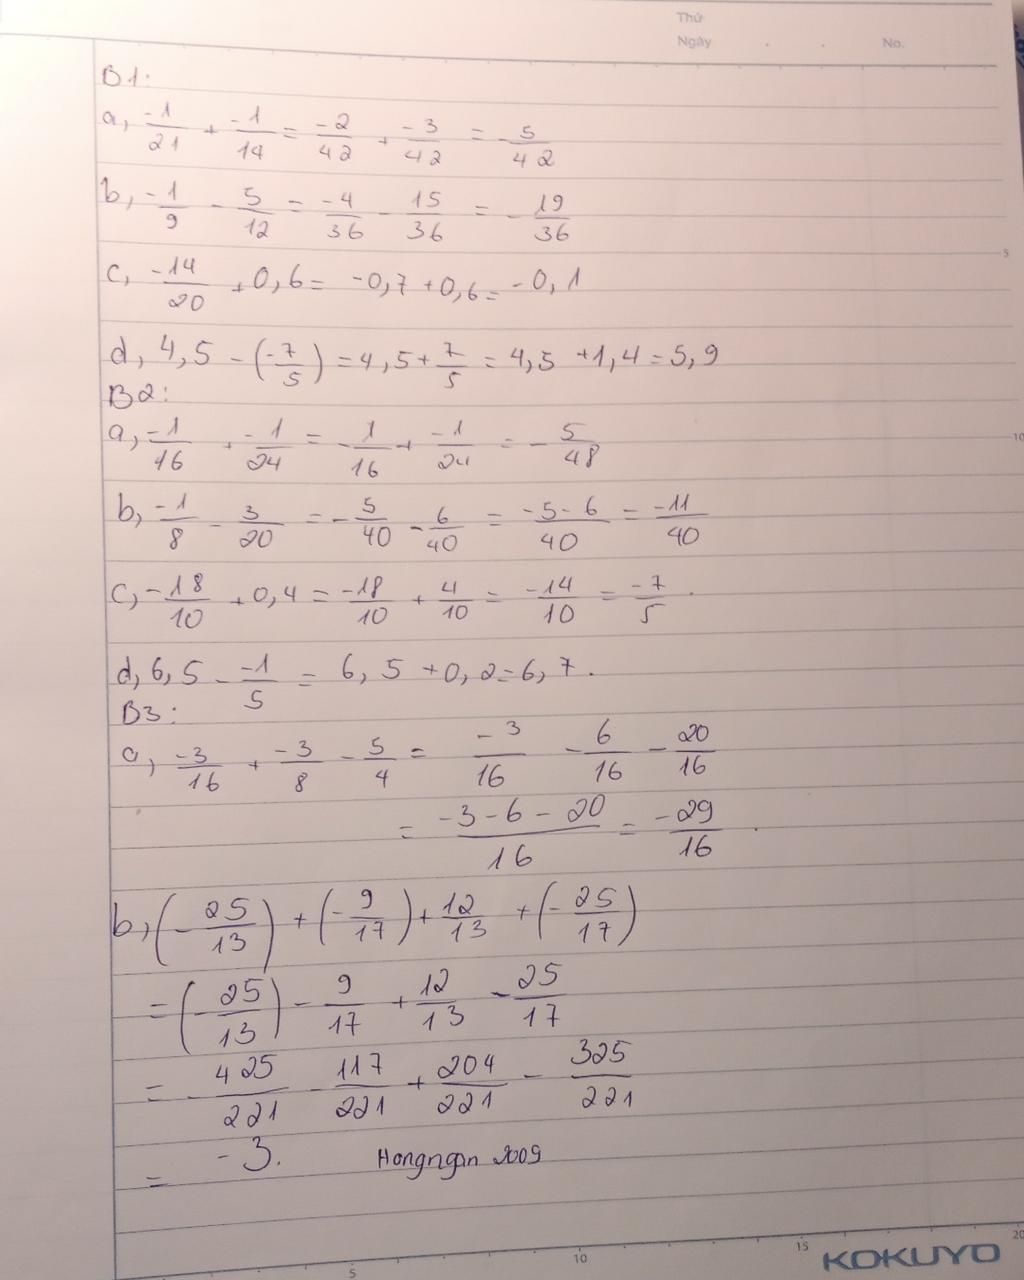 Thứ
Ngày . . No.
B1:
a, -1/21 + -1/14 = -2/42 + -3/42 = -5/42
b, -1/9 - 5/12 = -4/36 - 15/36 = -19/36
c, -14/20 + 0,6 = -0,7 + 0,6 = -0,1
d, 4,5 - (-7/5) = 4,5 + 7/5 = 4,5 + 1,4 = 5,9
B2:
a, -1/16 + -1/24 = -1/16 + -1/24 = -5/48
b, -1/8 - 3/20 = -5/40 - 6/40 = -5-6/40 = -11/40
c, -18/10 + 0,4 = -18/10 + 4/10 = -14/10 = -7/5.
d, 6,5 - -1/5 = 6,5 + 0,2 = 6,7.
B3:
a, -3/16 + -3/8 - 5/4 = -3/16 - 6/16 - 20/16
= -3-6-20/16 = -29/16.
b, (-25/13) + (-9/17) + 12/13 + (-25/17)
= (-25/13) - 9/17 + 12/13 - 25/17
= -425/221 - 117/221 + 204/221 - 325/221
= -3. Hongngan 2009
5
10
5
10
15
20
KOKUYO